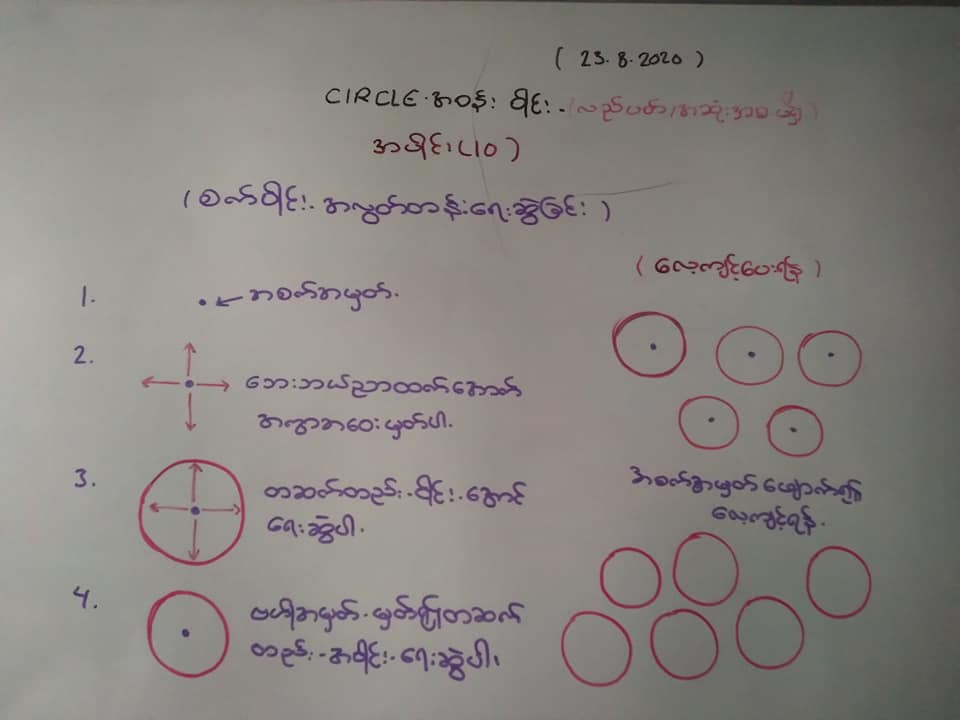 ( 23.8.2020 )
CIRCLE.အဝန်း ဝိုင်း.(လည်ပတ်/အဆုံးအစမရှိ)
အပိုင်း(10)
(စက်ဝိုင်း.အလွတ်တန်းရေးဆွဲခြင်း)
(လေ့ကျင့်ပေးရန်)
1. အစက်အမှတ်.
2. ဘေးဘယ်ညာထက်အောက်
အကွာအဝေးမှတ်ပါ.
3. တဆက်တည်း.ဝိုင်း.အောင်
ရေးဆွဲပါ.
4. ဗဟိုအမှတ်.မှတ်၍တဆက်
တည်း.အဝိုင်း.ရေးဆွဲပါ၊
အစက်အမှတ်ဖျောက်၍
လေ့ကျင့်ရန်.